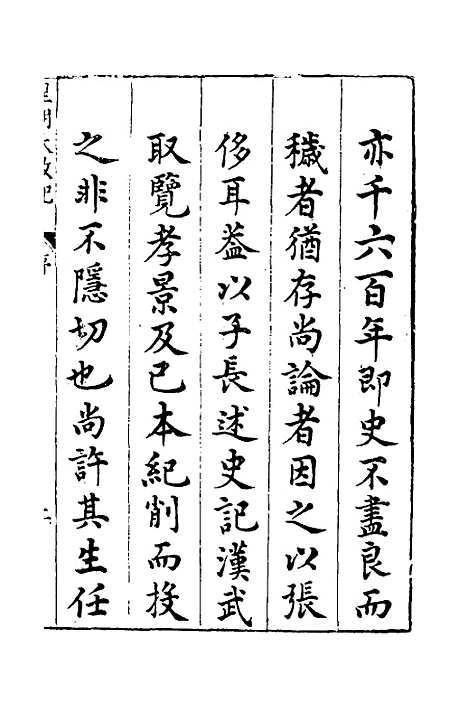 亦千六百年即史不盡良而
穢者猶存尚論者因之以張
侈耳葢以子長述史記漢武
取覽孝景及已本紀削而投
之非不隱切也尚許其生任
皇明大政記
序